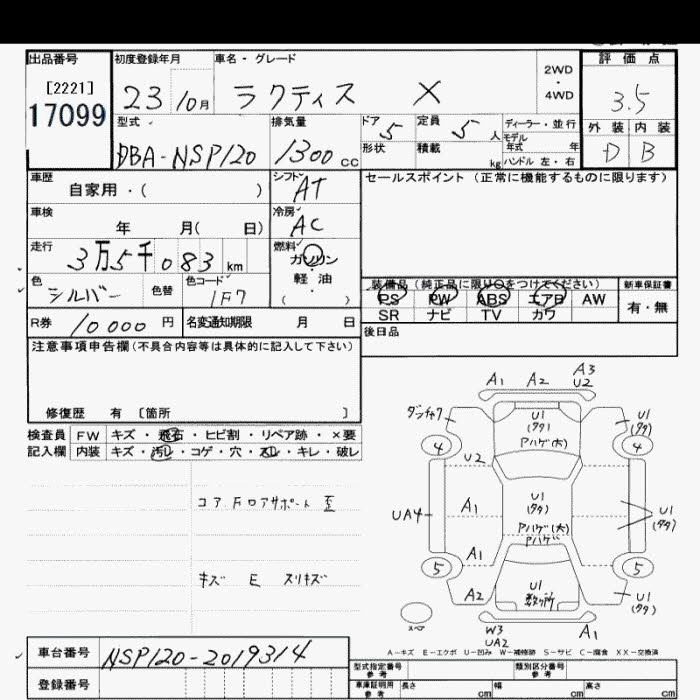 出品番号 初度登録年月 車名・グレード 評価点
[2221] 2WD
17099 23 10月 ラクティス X ・ 3.5
4WD
型式 排気量 ドア 定員 ディーラー・並行 外装 内装
5 5人 モデル
DBA-NSP120 1300cc 形状 積載 年式 年 D B
kg ハンドル 左・右
車歴 シフト セールスポイント(正常に機能するものに限ります)
自家用・( ) AT
車検 冷房
年 月( 日) AC
走行 燃料
3万5千083km ガソリン
色 色替 色コード 軽油 装備品(純正品に限り○をつけてください) 新車保証書
シルバー 1F7 ( ) PS PW ABS エアB AW 有・無
R券 10000円 名変通知期限 月 日 SR ナビ TV カワ
後日品
注意事項申告欄(不具合内容等は具体的に記入して下さい)
修復歴 有 〔箇所 〕
検査員 FW キズ・飛石・ヒビ割・リペア跡・×要
記入欄 内装 キズ・汚レ・コゲ・穴・スレ・キレ・破レ
コアFロアサポート 歪
キズ E スリキズ
A1 A2 A3
U2
U1
(タタ)
Pハゲ(大)
U1
(タタ)
4 4
U2
UA4 A1 U1
(タタ)
Pハゲ(大)
Pハゲ
U1
(タタ)
A1
5 5
A2 U1
数ヶ所
U1
(タタ)
スペア W3
UA2
A1
A-キズ E-エクボ U-凹み W-補修跡 S-サビ C-腐食 XX-交換済
車台番号 NSP120-2019314
型式指定番号 参考 類別区分番号 参考
登録番号 車庫証明用 参考 長さ cm 幅 cm 高さ cm